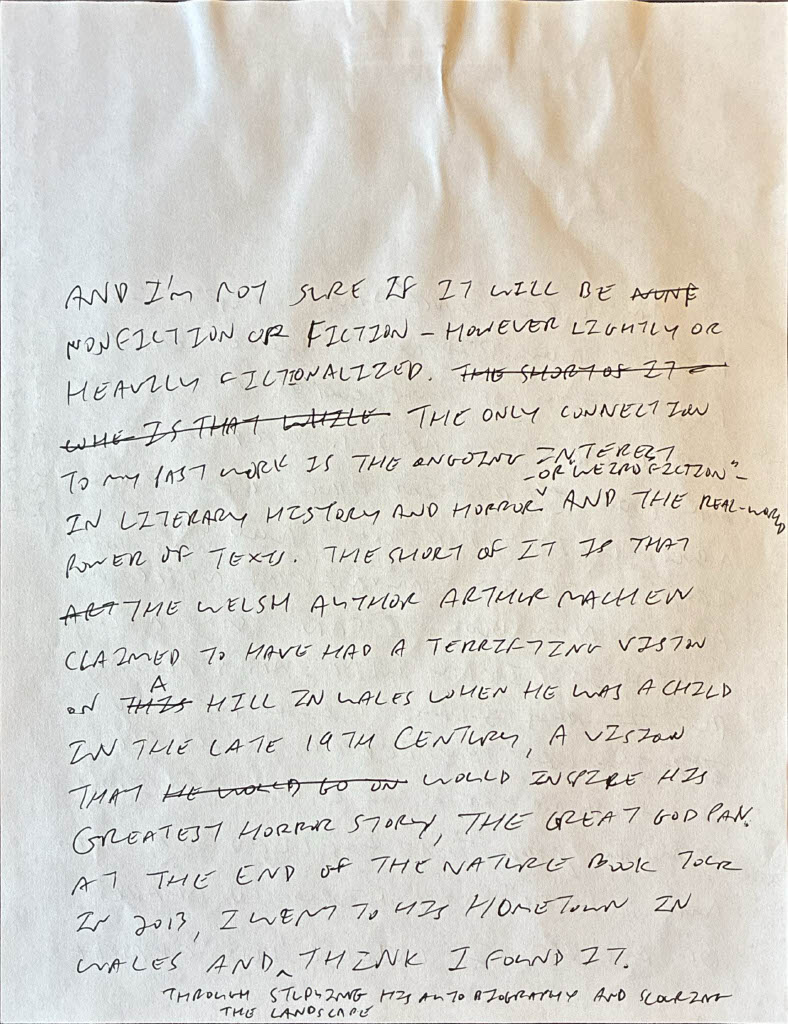 AND I'm NOT SURE IF IT WILL BE NONE
NONFICTION OR FICTION – HOWEVER LIGHTLY OR
HEAVILY FICTIONALIZED. THE SHORT OF IT
IS THAT WHILE THE ONLY CONNECTION
TO MY PAST WORK IS THE ONGOING INTEREST
– OR "WEIRD FICTION" –
IN LITERARY HISTORY AND HORROR AND THE REAL-WORLD
POWER OF TEXTS. THE SHORT OF IT IS THAT
ART THE WELSH AUTHOR ARTHUR MACHEN
CLAIMED TO HAVE HAD A TERRIFYING VISION
A
ON THIS HILL IN WALES WHEN HE WAS A CHILD
IN THE LATE 19TH CENTURY, A VISION
THAT HE WOULD GO ON WOULD INSPIRE HIS
GREATEST HORROR STORY, THE GREAT GOD PAN.
AT THE END OF THE NATURE BOOK TOUR
IN 2013, I WENT TO HIS HOMETOWN IN
WALES AND THINK I FOUND IT.
THROUGH STUDYING HIS AUTOBIOGRAPHY AND SCOURING
THE LANDSCAPE